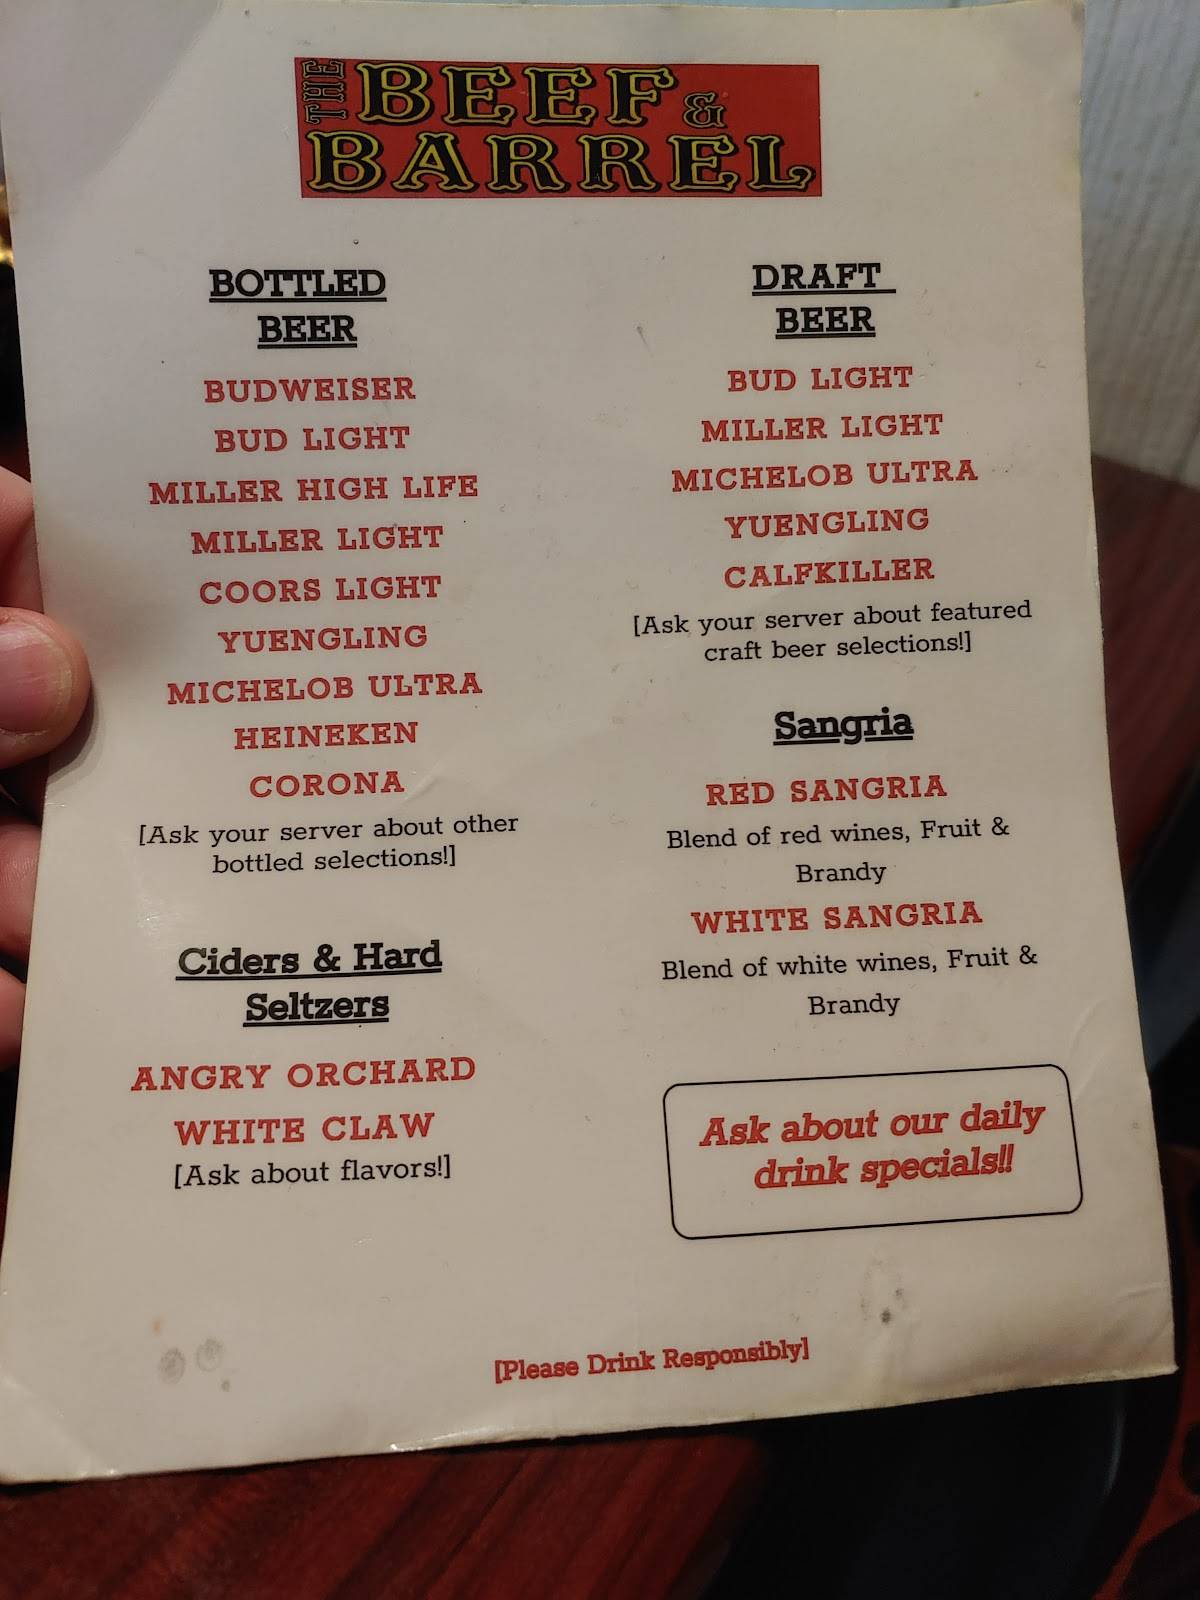 THE BEEF &
BARREL
BOTTLED
BEER
BUDWEISER
BUD LIGHT
MILLER HIGH LIFE
MILLER LIGHT
COORS LIGHT
YUENGLING
MICHELOB ULTRA
HEINEKEN
CORONA
[Ask your server about other
bottled selections!]
Ciders & Hard
Seltzers
ANGRY ORCHARD
WHITE CLAW
[Ask about flavors!]
DRAFT
BEER
BUD LIGHT
MILLER LIGHT
MICHELOB ULTRA
YUENGLING
CALFKILLER
[Ask your server about featured
craft beer selections!]
Sangria
RED SANGRIA
Blend of red wines, Fruit &
Brandy
WHITE SANGRIA
Blend of white wines, Fruit &
Brandy
Ask about our daily
drink specials!!
[Please Drink Responsibly]